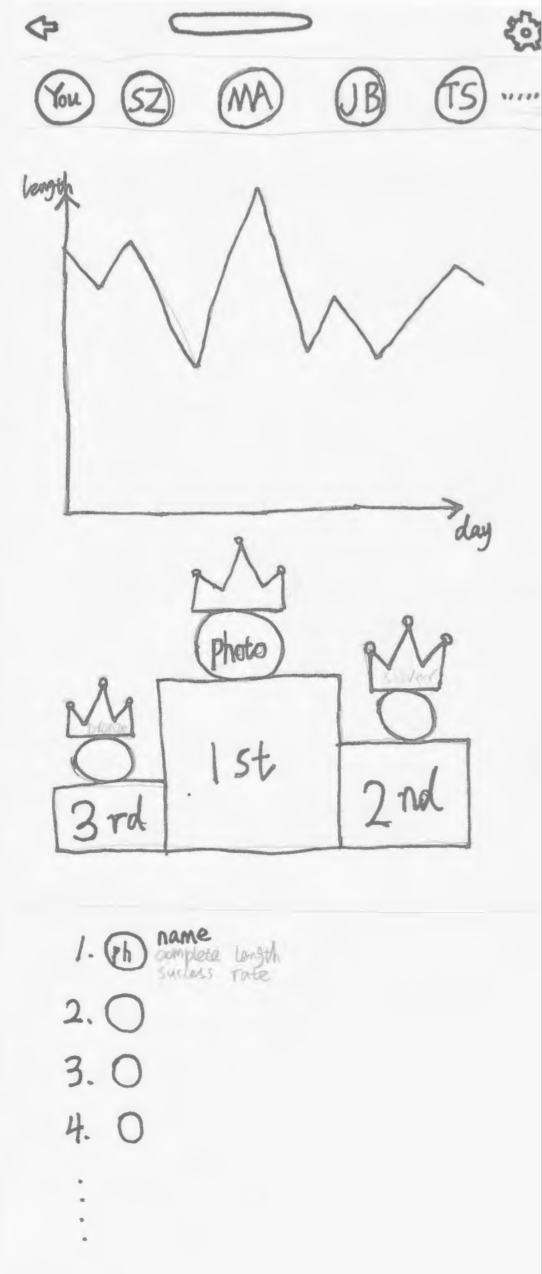 You SZ MA JB TS .....
length
day
photo
silver
1st
2nd
3rd
1. ph name
complete length
sucless rate
2.
3.
4.